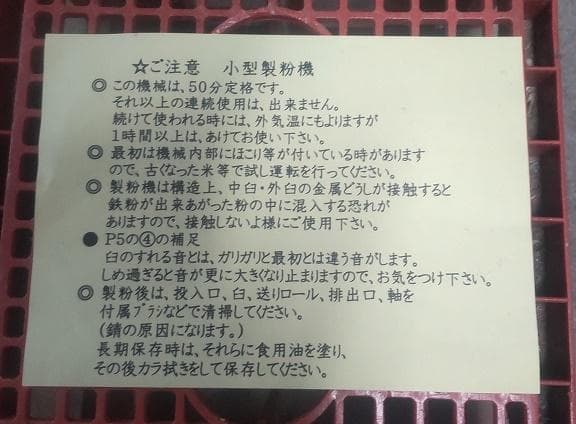 ☆ご注意　小型製粉機
◎ この機械は、50分定格です。
それ以上の連続使用は、出来ません。
続けて使われる時には、外気温にもよりますが
1時間以上は、あけてお使い下さい。
◎ 最初は機械内部にほこり等が付いている時があります
ので、古くなった米等で試し運転を行ってください。
◎ 製粉機は構造上、中臼・外臼の金属どうしが接触すると
鉄粉が出来あがった粉の中に混入する恐れが
ありますので、接触しないよう様にご使用下さい。
● P5の④の補足
臼のすれる音とは、ガリガリと最初とは違う音がします。
しめ過ぎると音が更に大きくなり止まりますので、お気をつけ下さい。
◎ 製粉後は、投入口、臼、送りロール、排出口、軸を
付属ブラシなどで清掃してください。
(錆の原因になります。)
長期保存時は、それらに食用油を塗り、
その後カラ拭きをして保存してください。